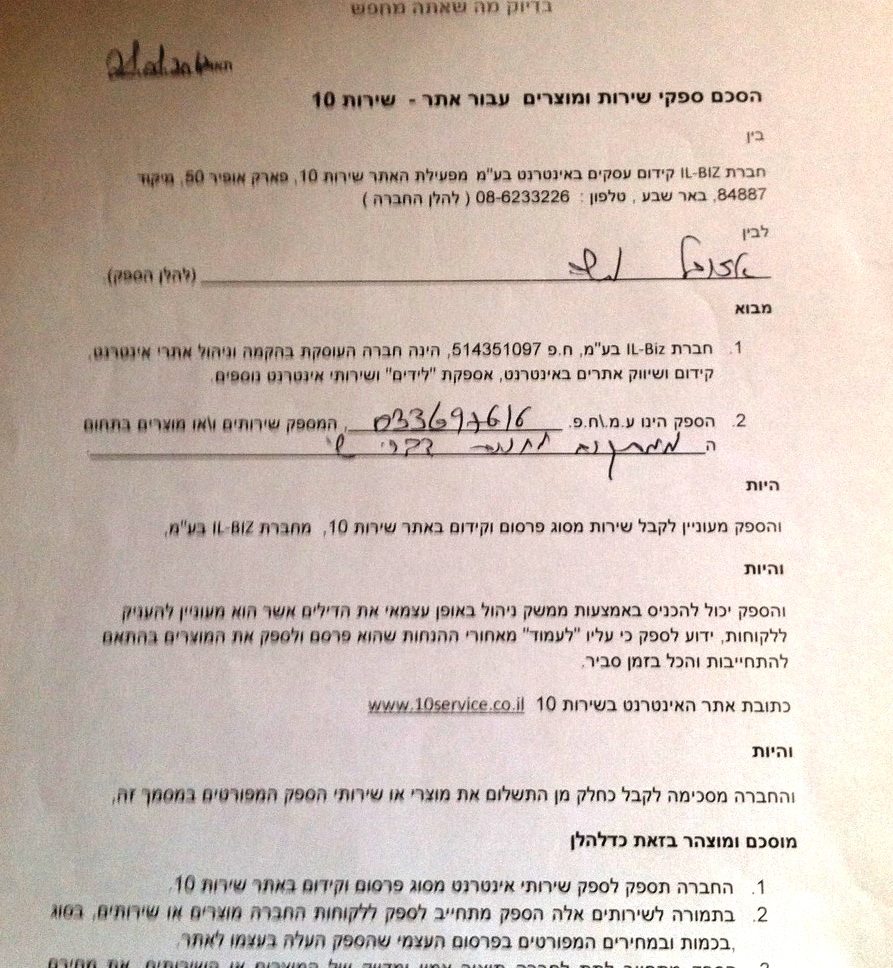 בדיוק מה שאתה מחפש
תאריך
הסכם ספקי שירות ומוצרים עבור אתר - שירות 10
בין
חברת IL-BIZ קידום עסקים באינטרנט בע"מ מפעילת האתר שירות 10, פארק אופיר 50, מיקוד
84887, באר שבע , טלפון : 08-6233226 ( להלן החברה )
לבין
(להלן הספק).
מבוא
1. חברת IL-Biz בע"מ, ח.פ 514351097, הינה חברה העוסקת בהקמה וניהול אתרי אינטרנט,
קידום ושיווק אתרים באינטרנט, אספקת "לידים" ושירותי אינטרנט נוספים.
2. הספק הינו ע.מ\ח.פ. 033697616, המספק שירותים ו\או מוצרים בתחום
ה
היות
והספק מעוניין לקבל שירות מסוג פרסום וקידום באתר שירות 10, מחברת IL-BIZ בע"מ,
והיות
והספק יכול להכניס באמצעות ממשק ניהול באופן עצמאי את הדילים אשר הוא מעוניין להעניק
ללקוחות, ידוע לספק כי עליו "לעמוד" מאחורי ההנחות שהוא פרסם ולספק את המוצרים בהתאם
להתחייבות והכל בזמן סביר.
כתובת אתר האינטרנט בשירות 10 www.10service.co.il
והיות
והחברה מסכימה לקבל כחלק מן התשלום את מוצרי או שירותי הספק המפורטים במסמך זה,
מוסכם ומוצהר בזאת כדלהלן
1. החברה תספק לספק שירותי אינטרנט מסוג פרסום וקידום באתר שירות 10.
2. בתמורה לשירותים אלה הספק מתחייב לספק ללקוחות החברה מוצרים או שירותים, בסוג
,בכמות ובמחירים המפורטים בפרסום העצמי שהספק העלה בעצמו לאתר.